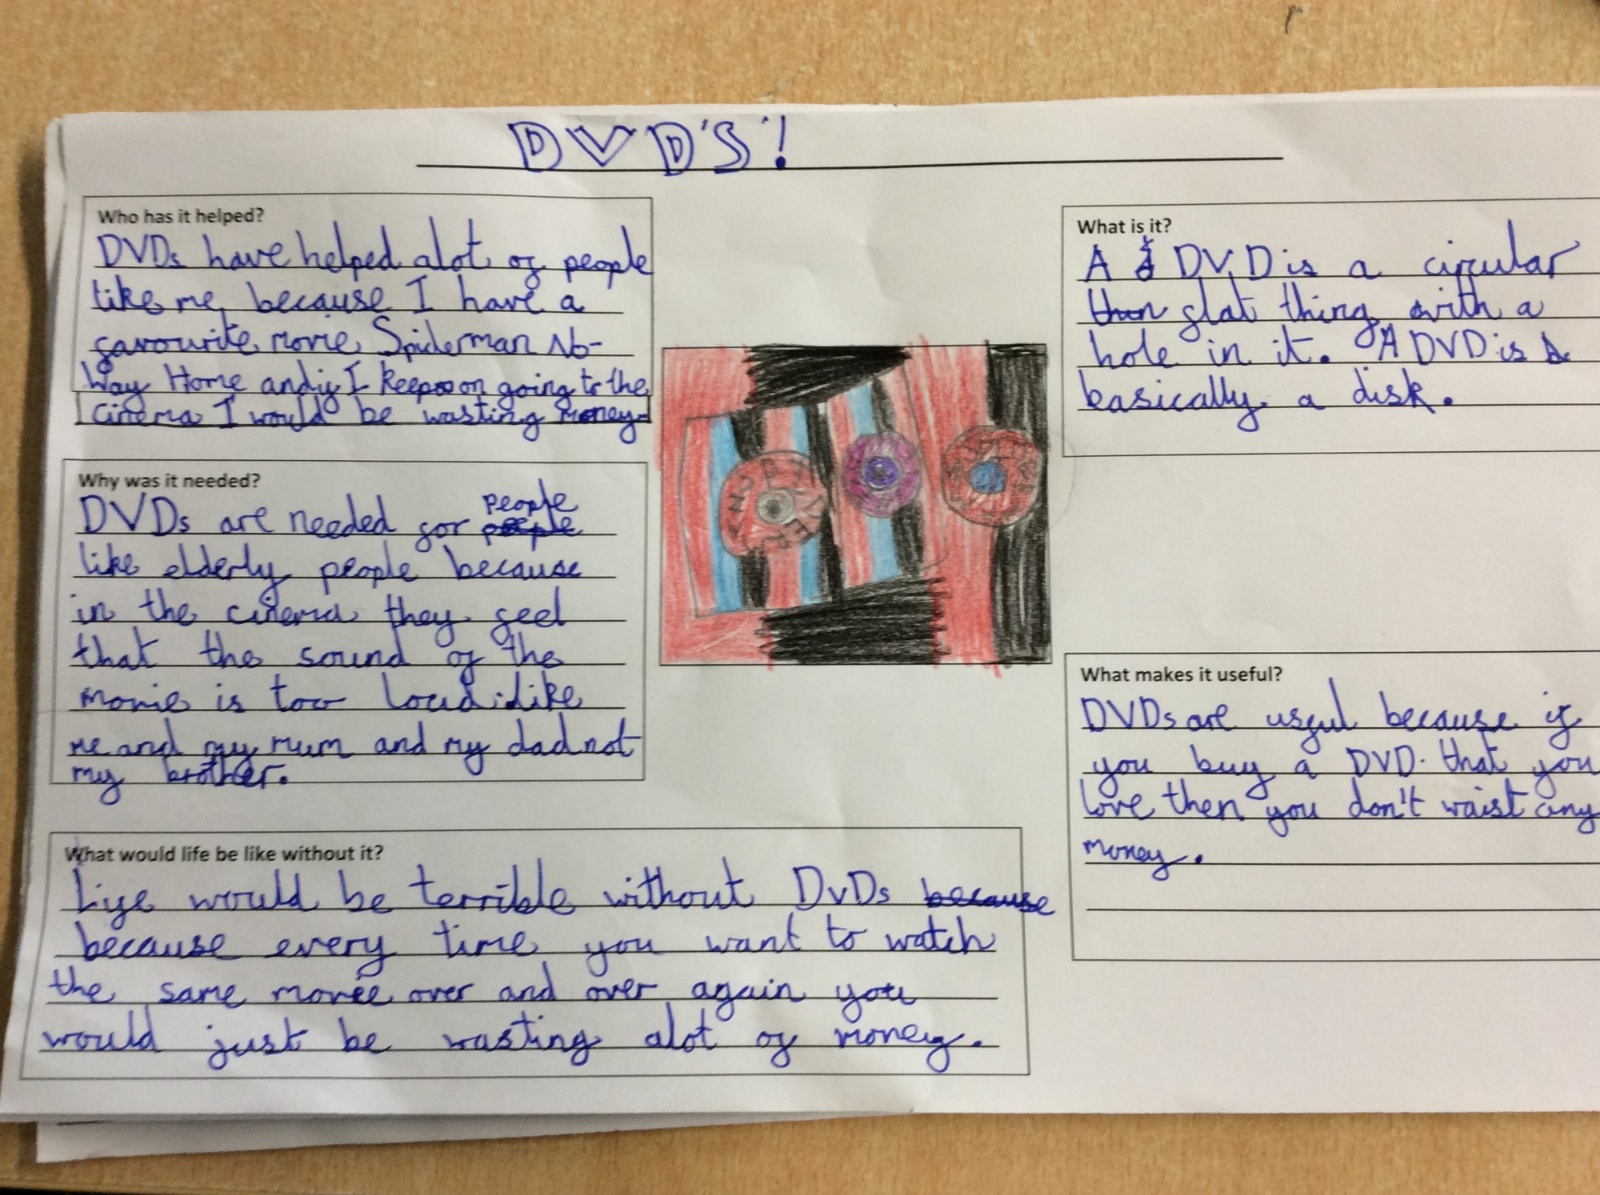 DVD'S!
Who has it helped?
DVDs have helped alot of people
like me, because I have a
favourite movie Spiderman No-
Way Home and if I keep on going to the
cinema I would be wasting money.
What is it?
A DVD is a circular
flat thing with a
hole in it. A DVD is
basically a disk.
Why was it needed?
DVDs are needed for people
like elderly people because
in the cinema they feel
that the sound of the
movie is too loud. like
me and my mum and my dad not
my brother.
What makes it useful?
DVDs are useful because if
you buy a DVD that you
love then you don't waist any
money.
What would life be like without it?
Life would be terrible without DVDs because
because every time you want to watch
the same movie over and over again you
would just be wasting alot of money.